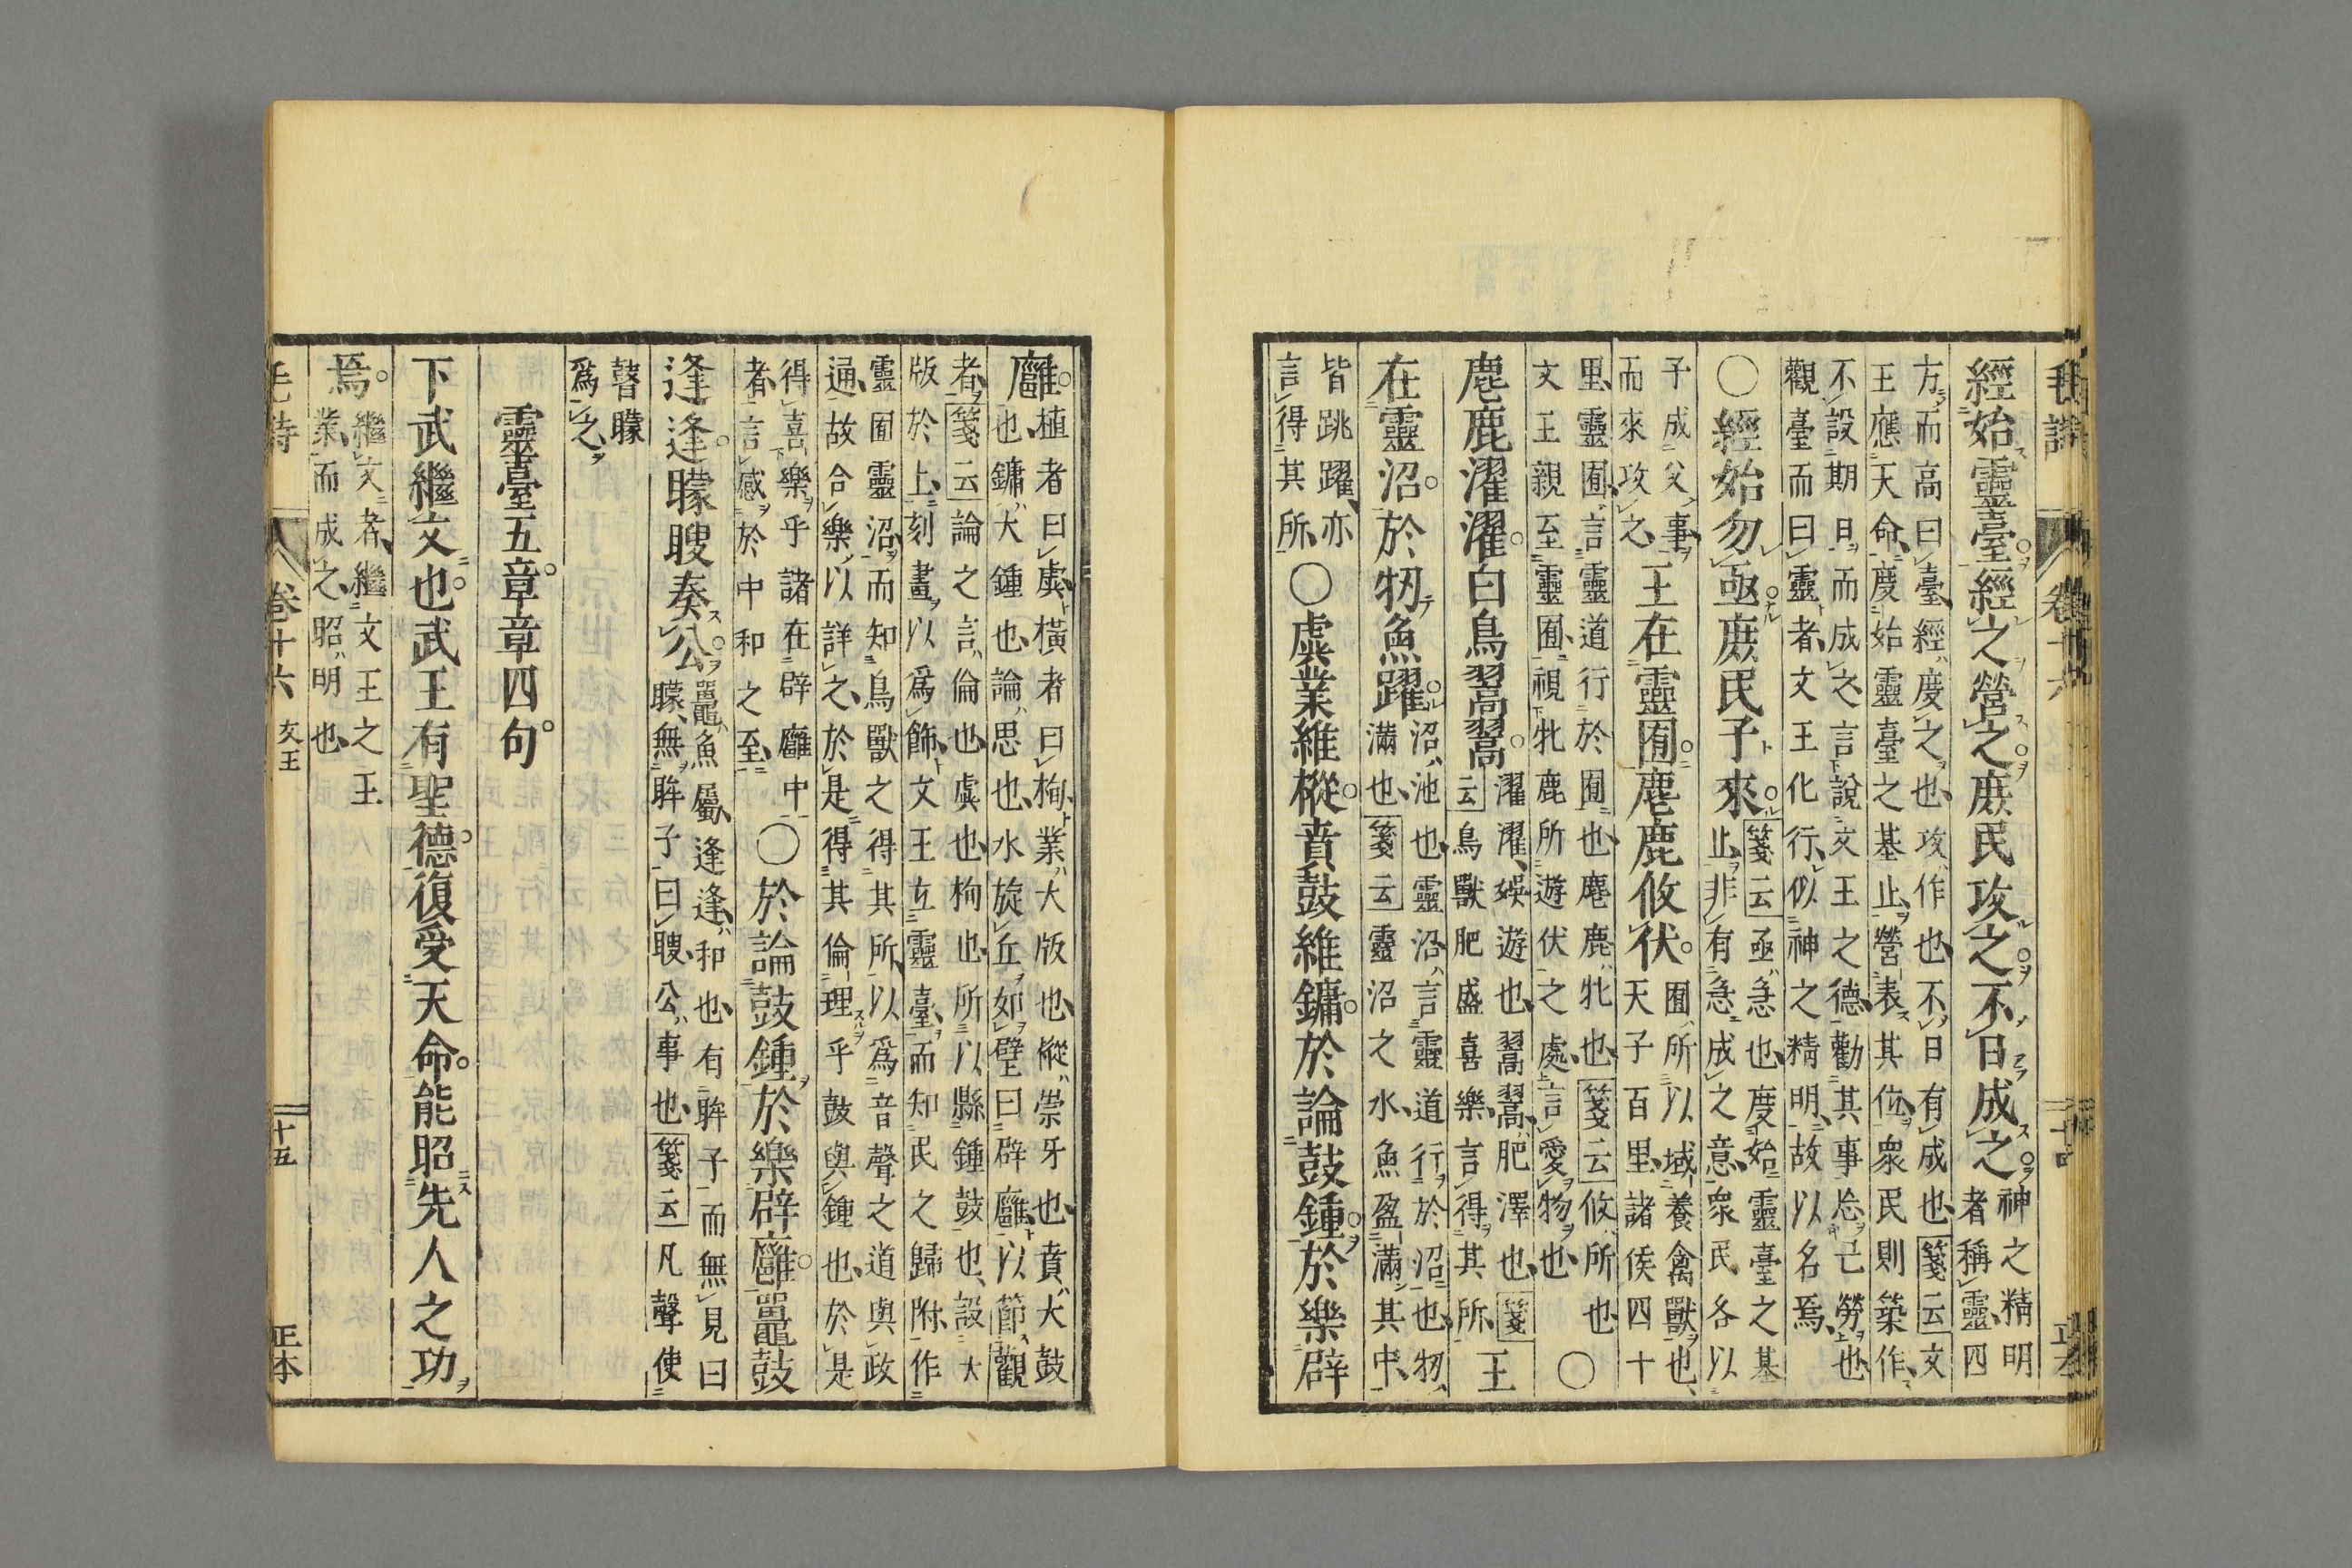 經始靈臺經之營之庶民攻之不日成之
神之精明
者稱靈四
方而高曰臺經度之也攻作也不日有成也箋云文
王應天命度始靈臺之基止營表其位衆民則築作
不設期日而成之言說文王之德勸其事忘己勞也
觀臺而曰靈者文王化行似神之精明故以名焉
〇經始勿亟庶民子來
箋云亟急也度始靈臺之基
止非有急成之意衆民各以
子成父事
而來攻之
王在靈囿麀鹿攸伏
囿所以域養禽獸也
天子百里諸侯四十
里靈囿言靈道行於囿也麀鹿牝也箋云攸所也
文王親至靈囿視牝鹿所遊伏之處言愛物也
〇
麀鹿濯濯白鳥翯翯
濯濯娛遊也翯翯肥澤也箋
云鳥獸肥盛喜樂言得其所
王
在靈沼於牣魚躍
沼池也靈沼言靈道行於沼也牣
滿也箋云靈沼之水魚盈滿其中
皆跳躍亦
言得其所
〇虡業維樅賁鼓維鏞於論鼓鍾於樂辟
廱
植者曰虡橫者曰栒業大版也樅崇牙也賁大鼓
也鏞大鍾也論思也水旋丘如璧曰辟廱以節觀
者箋云論之言倫也虡也栒也所以縣鍾鼓也設大
版於上刻畫以爲飾文王立靈臺而知民之歸附作
靈囿靈沼而知鳥獸之得其所以爲音聲之道與政
通故合樂以詳之於是得其倫理乎鼓與鍾也於是
得喜樂乎諸在辟廱中
者言感於中和之至
〇於論鼓鍾於樂辟廱鼉鼓
逢逢矇瞍奏公
鼉魚屬逢逢和也有眸子而無見曰
矇無眸子曰瞍公事也箋云凡聲使
瞽矇
爲之
靈臺五章章四句
下武繼文也武王有聖德復受天命能昭先人之功
焉
繼文者繼文王之王
業而成之昭明也
毛詩 卷十六 文王 十五 正本